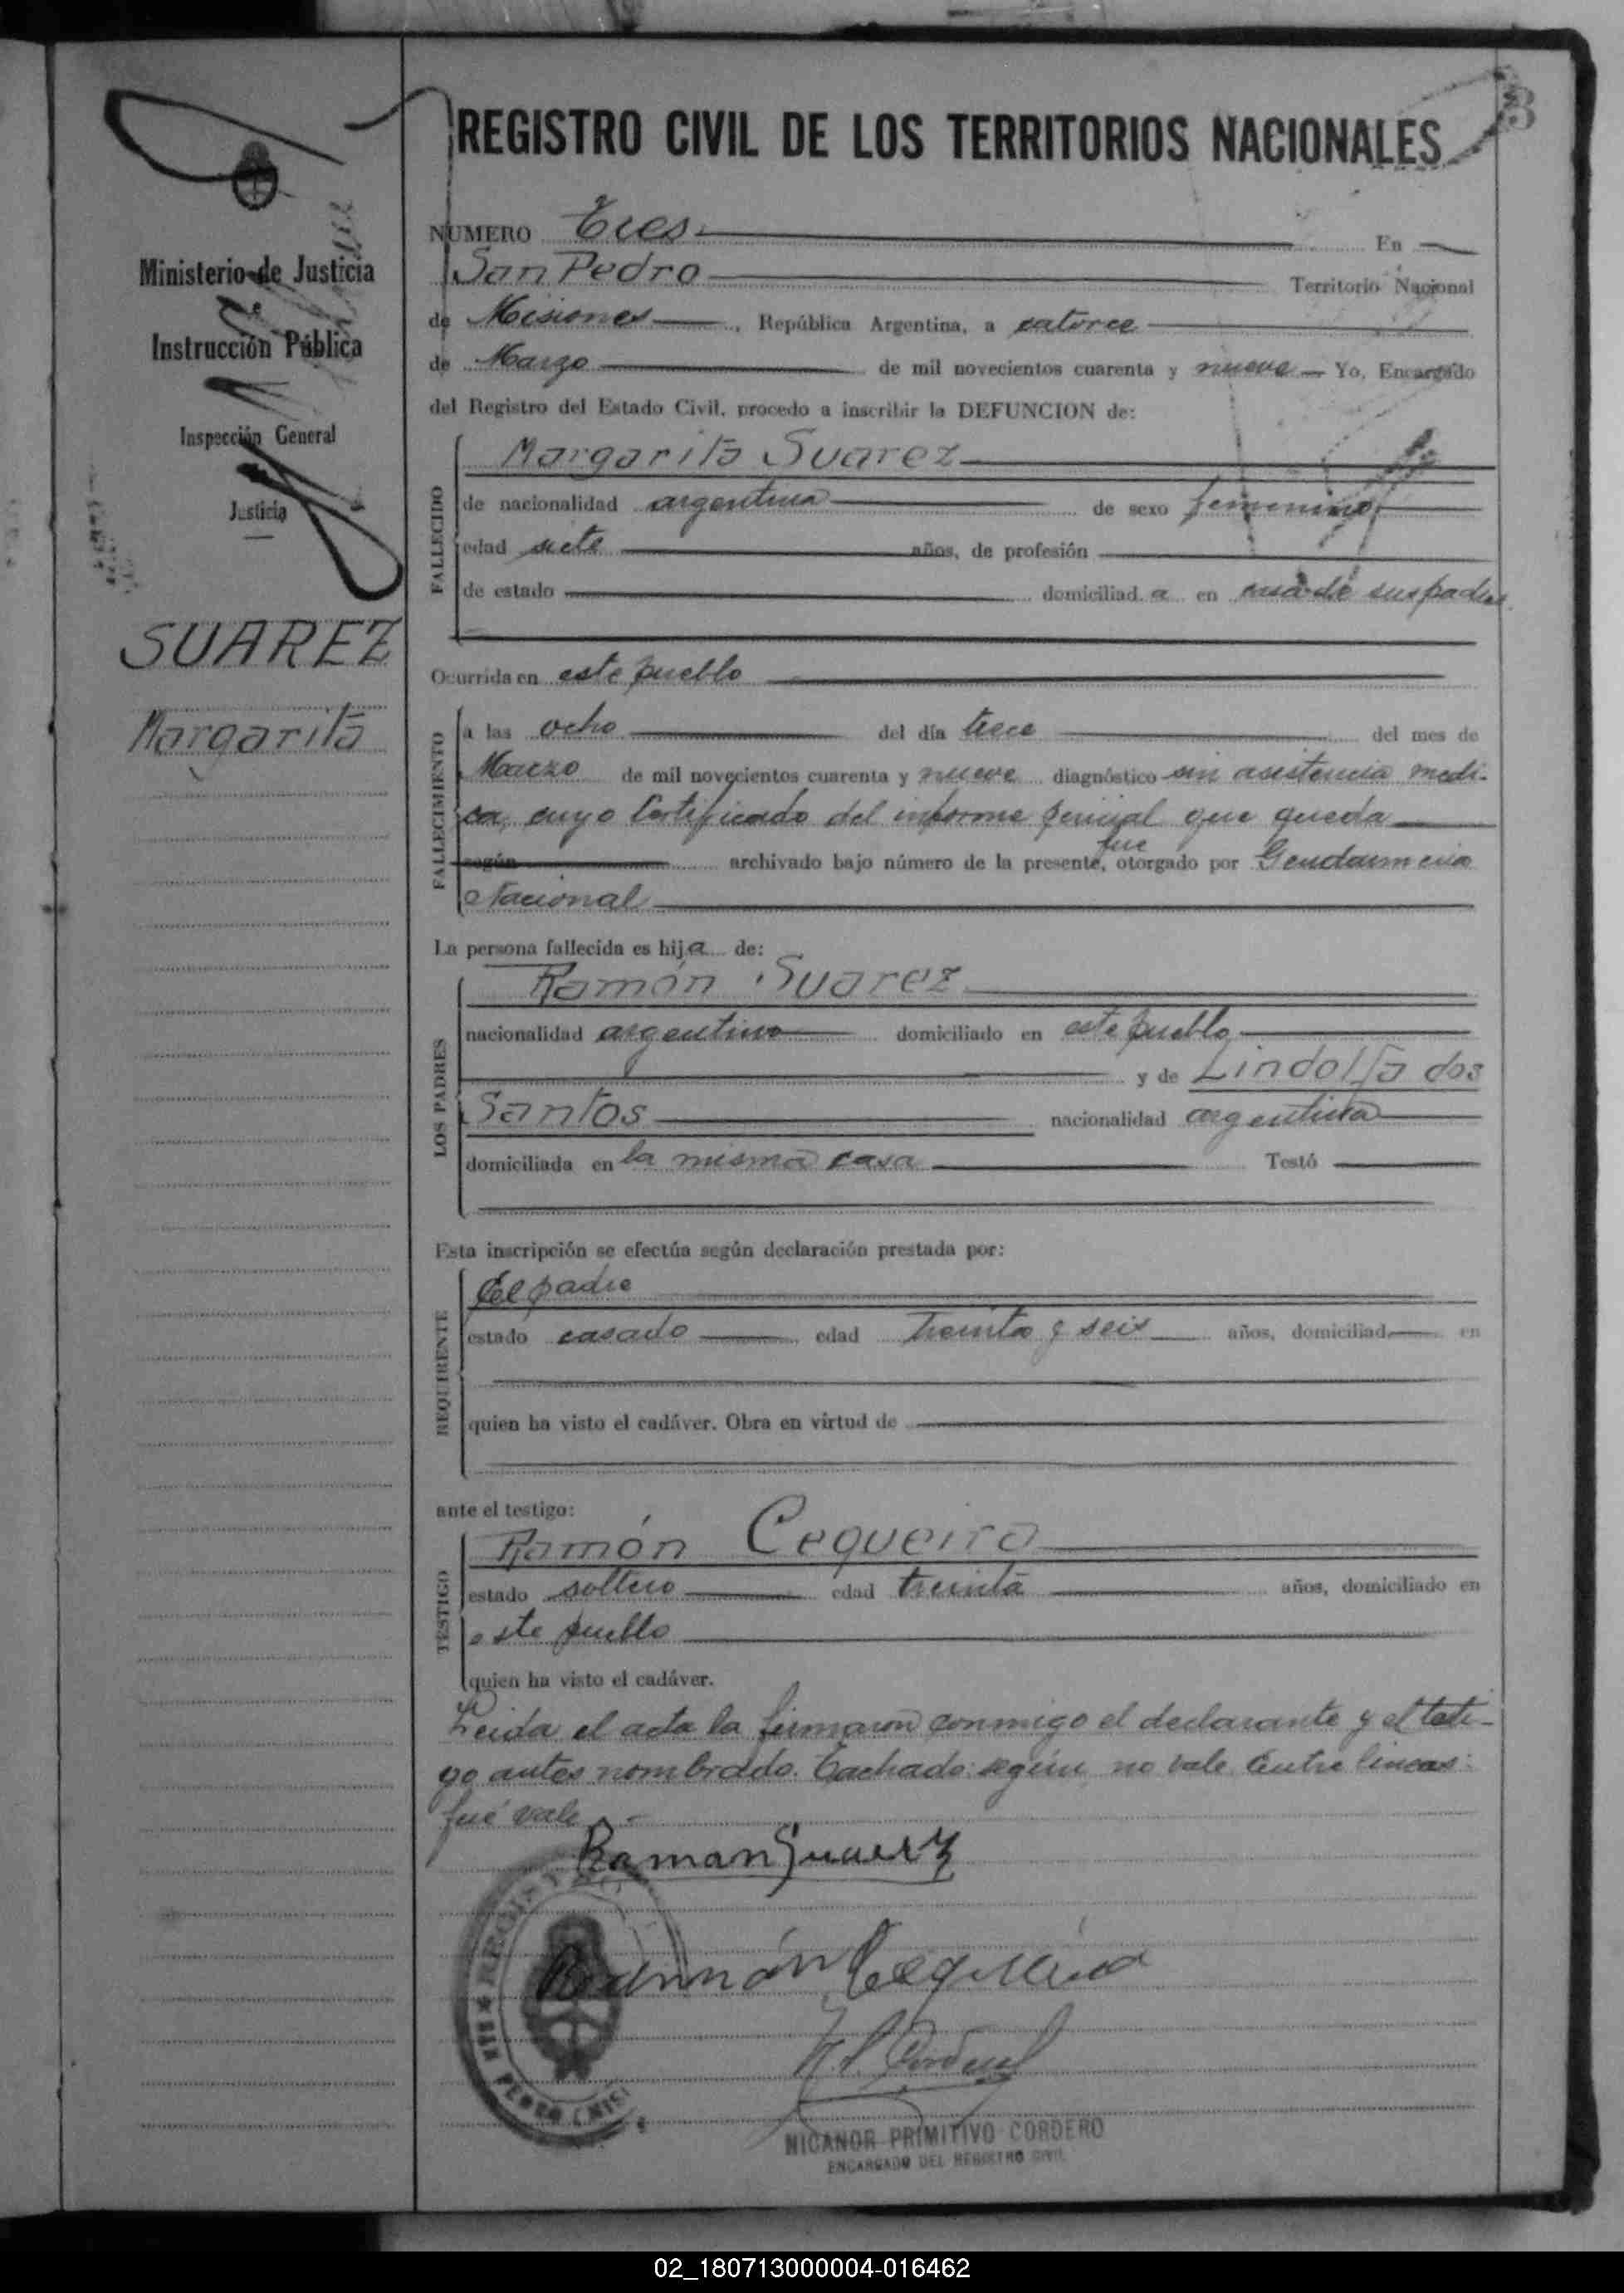 REGISTRO CIVIL DE LOS TERRITORIOS NACIONALES
3
Ministerio de Justicia
e
Instrucción Pública
Inspección General
Justicia
SUAREZ
Margarita
NUMERO Tres En
San Pedro Territorio Nacional
de Misiones, República Argentina, a catorce
de Marzo de mil novecientos cuarenta y nueve Yo, Encargado
del Registro del Estado Civil, procedo a inscribir la DEFUNCION de:
FALLECIDO
Margarita Suarez
de nacionalidad argentina de sexo femenino
edad siete años, de profesión
de estado domiciliad a en casa de sus padres
Ocurrida en este pueblo
FALLECIMIENTO
a las ocho del día trece del mes de
Marzo de mil novecientos cuarenta y nueve diagnóstico sin asistencia medi-
ca, cuyo Certificado del informe pericial que queda
fue
según archivado bajo número de la presente, otorgado por Gendarmeria
Nacional
La persona fallecida es hija de:
LOS PADRES
Ramón Suarez
nacionalidad argentino domiciliado en este pueblo
y de Lindolfa dos
Santos nacionalidad argentina
domiciliada en la misma casa Testó
Esta inscripción se efectúa según declaración prestada por:
REQUIRENTE
El padre
estado casado edad treinta y seis años, domiciliad en
quien ha visto el cadáver. Obra en virtud de
ante el testigo:
TESTIGO
Ramón Cequeira
estado soltero edad treinta años, domiciliado en
este pueblo
quien ha visto el cadáver.
Leida el acta la firmaron conmigo el declarante y el testi-
go antes nombrado. Tachado: según no vale. Entre lineas:
fué vale
Raman Suarez
Ramón Cequeira
N. P. Cordero
REGIST
SAN PEDRO (MISI
NICANOR PRIMITIVO CORDERO
ENCARGADO DEL REGISTRO CIVIL
02_180713000004-016462